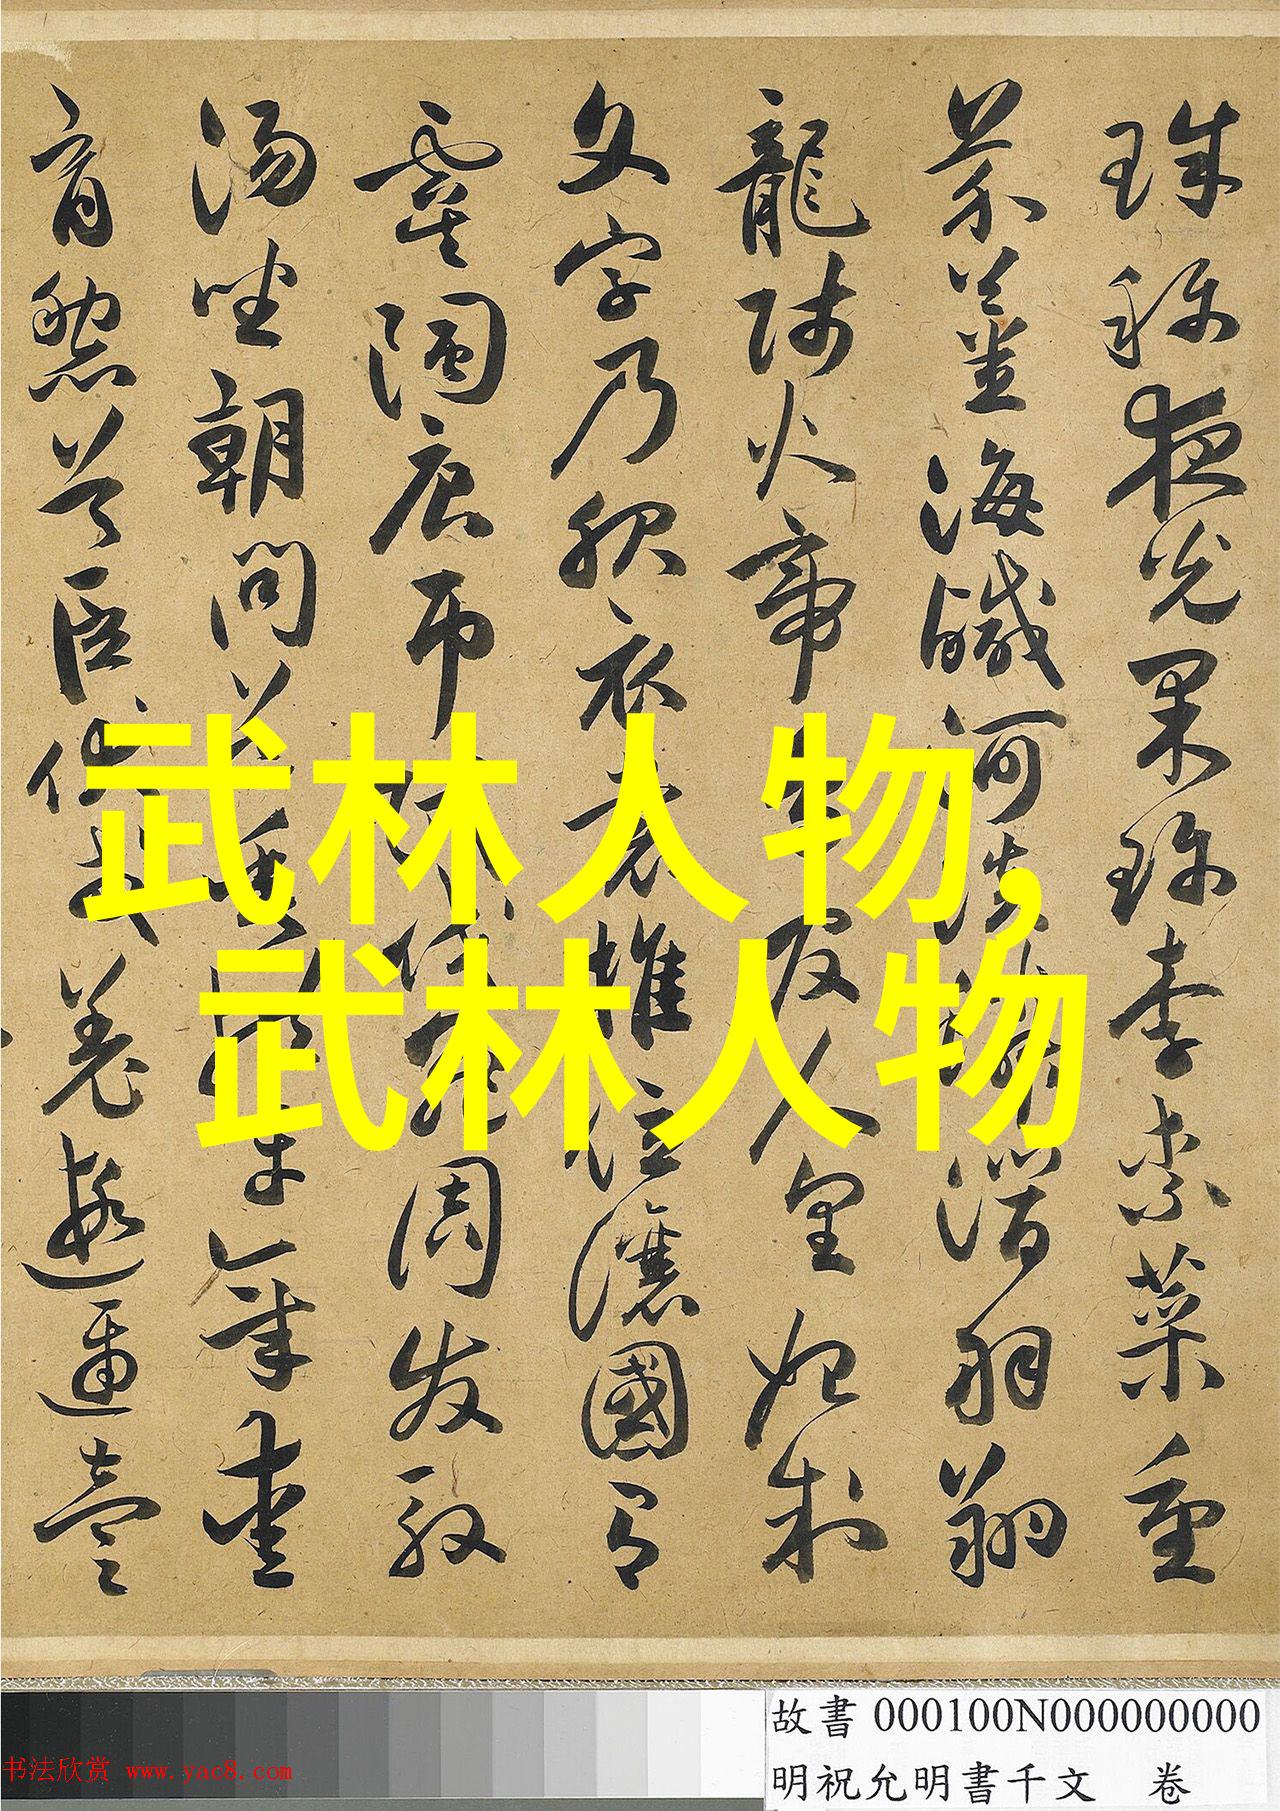 珠称夜光果珍李柰菜重
芥薑海鹹河淡鱗潛羽翔
龍師火帝鳥官人皇始制
文字乃服衣裳推位讓國有
虞陶唐弔民伐罪周发殷
湯坐朝問道垂拱平章愛
育黎首臣伏戎羌遐邇壹
武林人物,
武林人物
故書 000100N000000000
明祝允明書千文 卷
书法欣赏 www.yac8.com